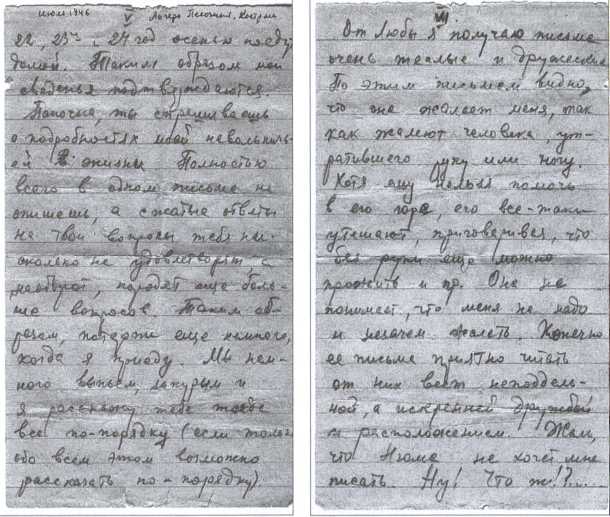 июль 1946
V
Лагерь Песочная, Кострома
22, 23 и 24 год осенью поедут
домой. Таким образом мои
сведенья подтверждаются.
Папочка, ты спрашиваешь
о подробностях моей невольничь-
ей жизни. Полностью
всего в одном письме не
опишешь, а сжатые ответы
на твои вопросы тебя ни-
сколько не удовлетворят, а
наоборот, породят еще боль-
ше вопросов. Таким об-
разом, потерпи еще немного,
когда я приеду. Мы нем-
ного выпьем, закурим и
я расскажу тебе тогда
все по-порядку (если только
обо всем этом возможно
рассказать по-порядку).
VI
От Любы я получаю письма
очень теплые и дружеские.
По этим письмам видно,
что она жалеет меня, так
как жалеют человека, ут-
ратившего руку или ногу.
Хотя ему нельзя помочь
в его горе, его все-таки
утешают, приговаривая, что
без руки еще можно
прожить и пр. Она не
понимает, что меня не надо
и незачем жалеть. Конечно
ее письма приятно читать
от них веет неподдель-
ной, а искренней дружбой
и расположением. Жаль,
что Нюма не хочет мне
писать. Ну! Что ж!?...